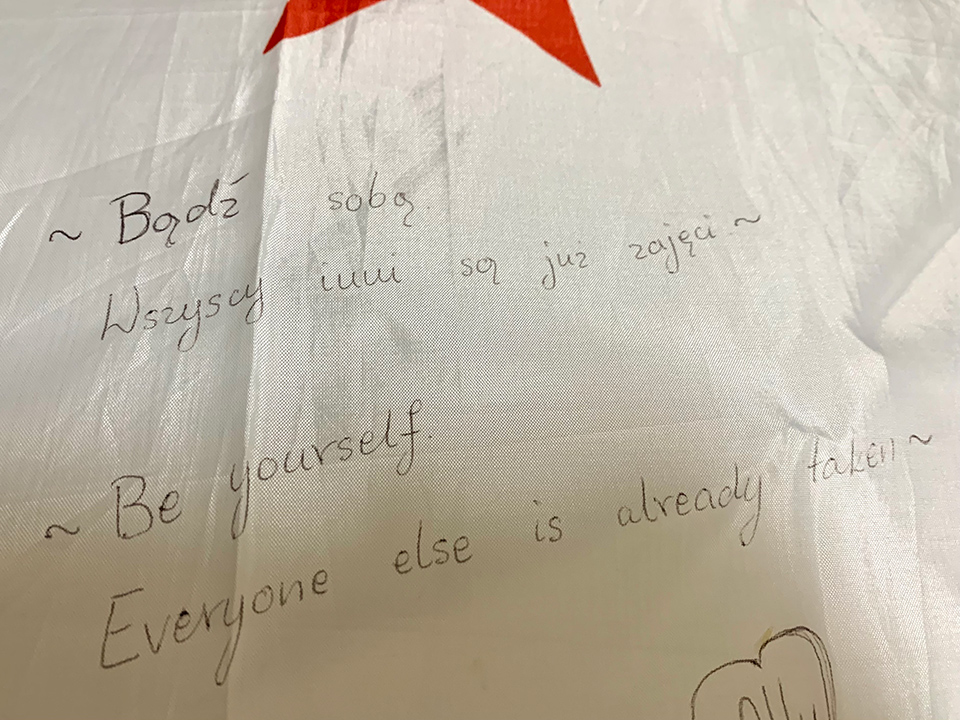 ~ Bądź sobą.
Wszyscy inni są już zajęci ~
~ Be yourself.
Everyone else is already taken ~